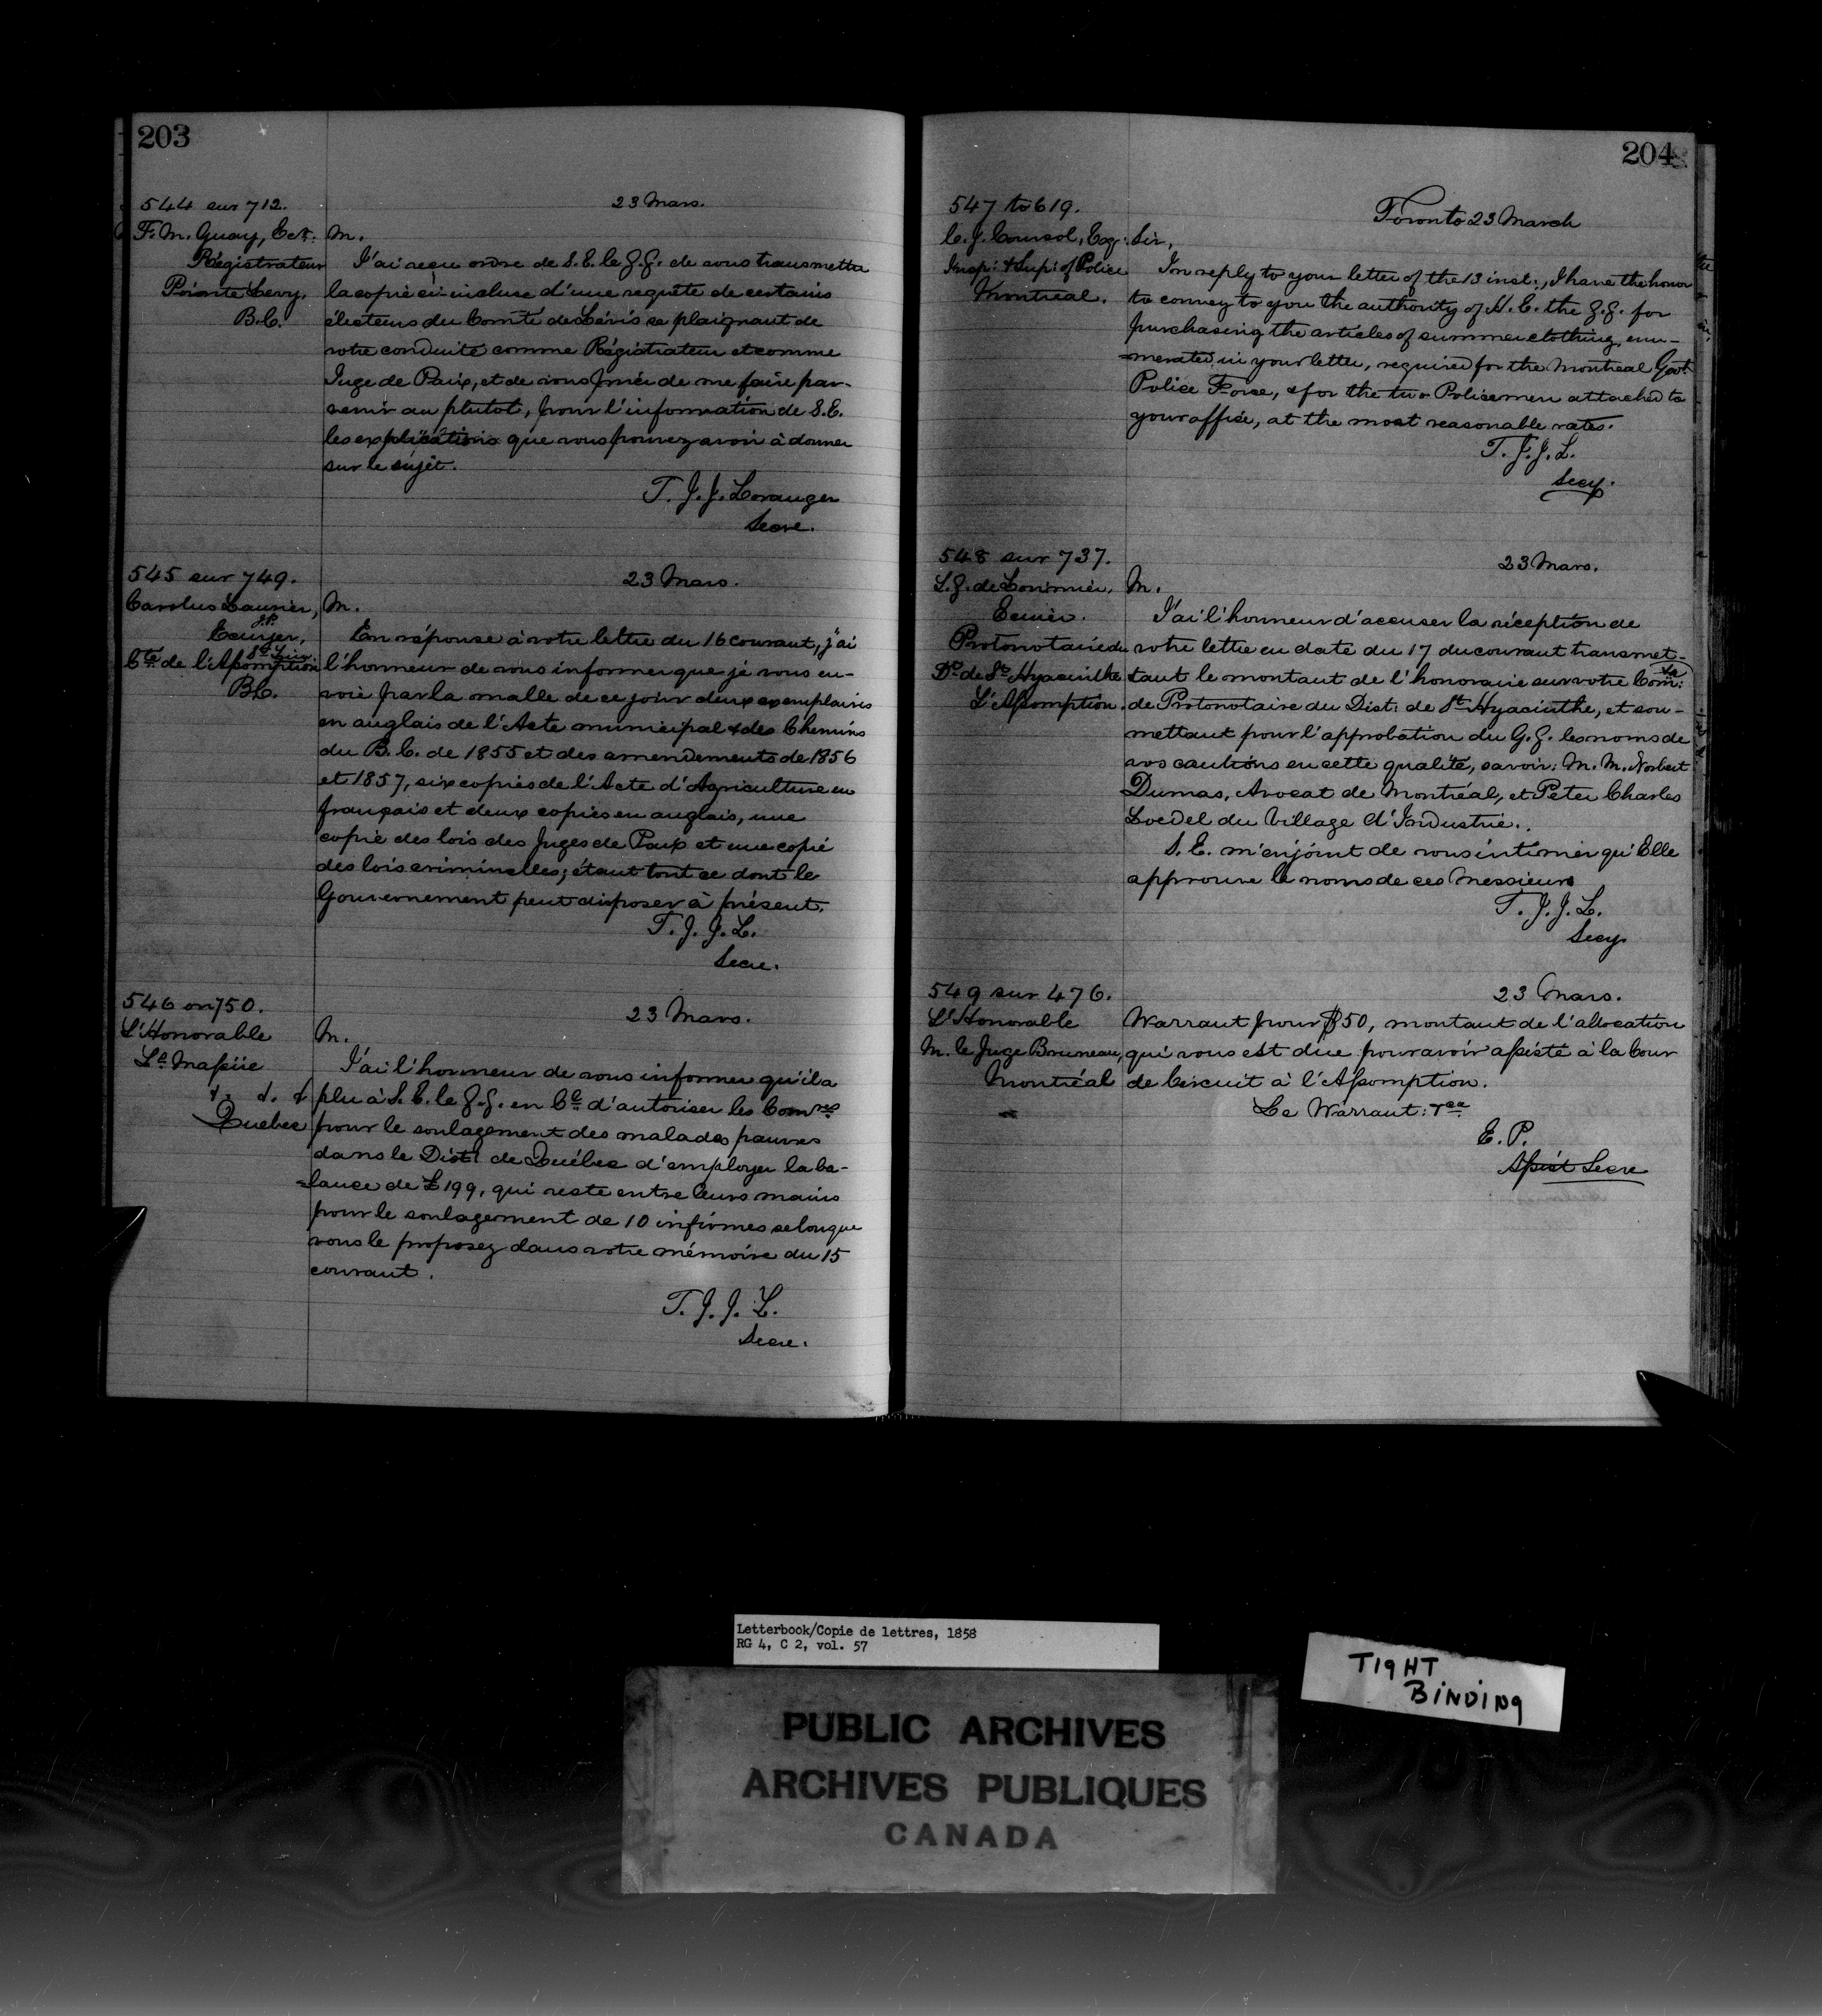 203
544 sur 712.
F. M. Guay, Ecr.
Régistrateur
Pointe Levy,
B.C.
23 Mars.
M.
J'ai reçu ordre de S. E. le G. G. de vous transmettre
la copie ci-incluse d'une requête de certains
électeurs du Comté de Lévis se plaignant de
votre conduite comme Régistrateur et comme
Juge de Paix, et de vous prier de me faire par-
venir au plutot, pour l'information de S. E.
les explications que vous pouvez avoir à donner
sur le sujèt.
T. J. J. Loranger
Secre.
545 sur 749.
Carolus Laurier,
J.P.
Ecuyer,
St Lin
Cté de l'Assomption
B.C.
23 Mars.
M.
En réponse à votre lettre du 16 courant, j'ai
l'honneur de vous informer que je vous en-
voie par la malle de ce jour deux exemplaires
en anglais de l'Acte municipal & des Chemins
du B. C. de 1855 et des amendements de 1856
et 1857, six copies de l'Acte d'Agriculture en
français et deux copies en anglais, une
copie des lois des Juges de Paix et une copie
des lois criminelles; étant tout ce dont le
Gouvernement peut disposer à présent.
T. J. J. L.
Secre.
546 on 750.
L'Honorable
Ls Massüe
&. &. &
Quebec
23 Mars.
M.
J'ai l'honneur de vous informer qu'il a
plu à S. E. le G. G. en Cl d'autoriser les Comres
pour le soulagement des malades pauvres
dans le Dist. de Québec d'employer la ba-
=lance de £199, qui reste entre leurs mains
pour le soulagement de 10 infirmes selon que
vous le proposez dans votre mémoire du 15
courant.
T. J. J. L.
Secre.
204
547 to 619.
C. J. Coursol, Esqr.
Insp: & Sup: of Police
Montreal.
Toronto 23 March
Sir,
In reply to your letter of the 13 inst:, I have the honor
to convey to you the authority of H. E. the G. G. for
purchasing the articles of summer clothing, enu-
=merated in your letter, required for the Montreal Govt
Police Force, & for the two Policemen attached to
your office, at the most reasonable rates.
T. J. J. L.
Secy.
548 sur 737.
L. G. de Lorimier,
Ecuier.
Protonotaire du
Dt de St Hyacinthe
L'Assomption.
23 Mars.
M.
J'ai l'honneur d'accuser la réception de
votre lettre en date du 17 du courant transmet-
tant le montant de l'honoraire sur votre Com:
de Protonotaire du Dist: de St Hyacinthe, et sou-
mettant pour l'approbation du G. G. les noms de
vos cautions en cette qualité, savoir: M. M. Norbert
Dumas, Avocat de Montréal, et Peter Charles
Loedel du Village d'Industrie.
S. E. m'enjoint de vous intimer qu'Elle
approuve le noms de ces Messieurs
T. J. J. L.
Secy.
549 sur 476.
L'Honorable
M. le Juge Bruneau,
Montréal
23 Mars.
Warrant pour $50, montant de l'allocation
qui vous est due pour avoir assisté à la Cour
de Circuit à l'Assomption.
Le Warrant:
E. P.
Assist Secre
Letterbook/Copie de lettres, 1858
RG 4, C 2, vol. 57
TIGHT
BINDING
PUBLIC ARCHIVES
ARCHIVES PUBLIQUES
CANADA